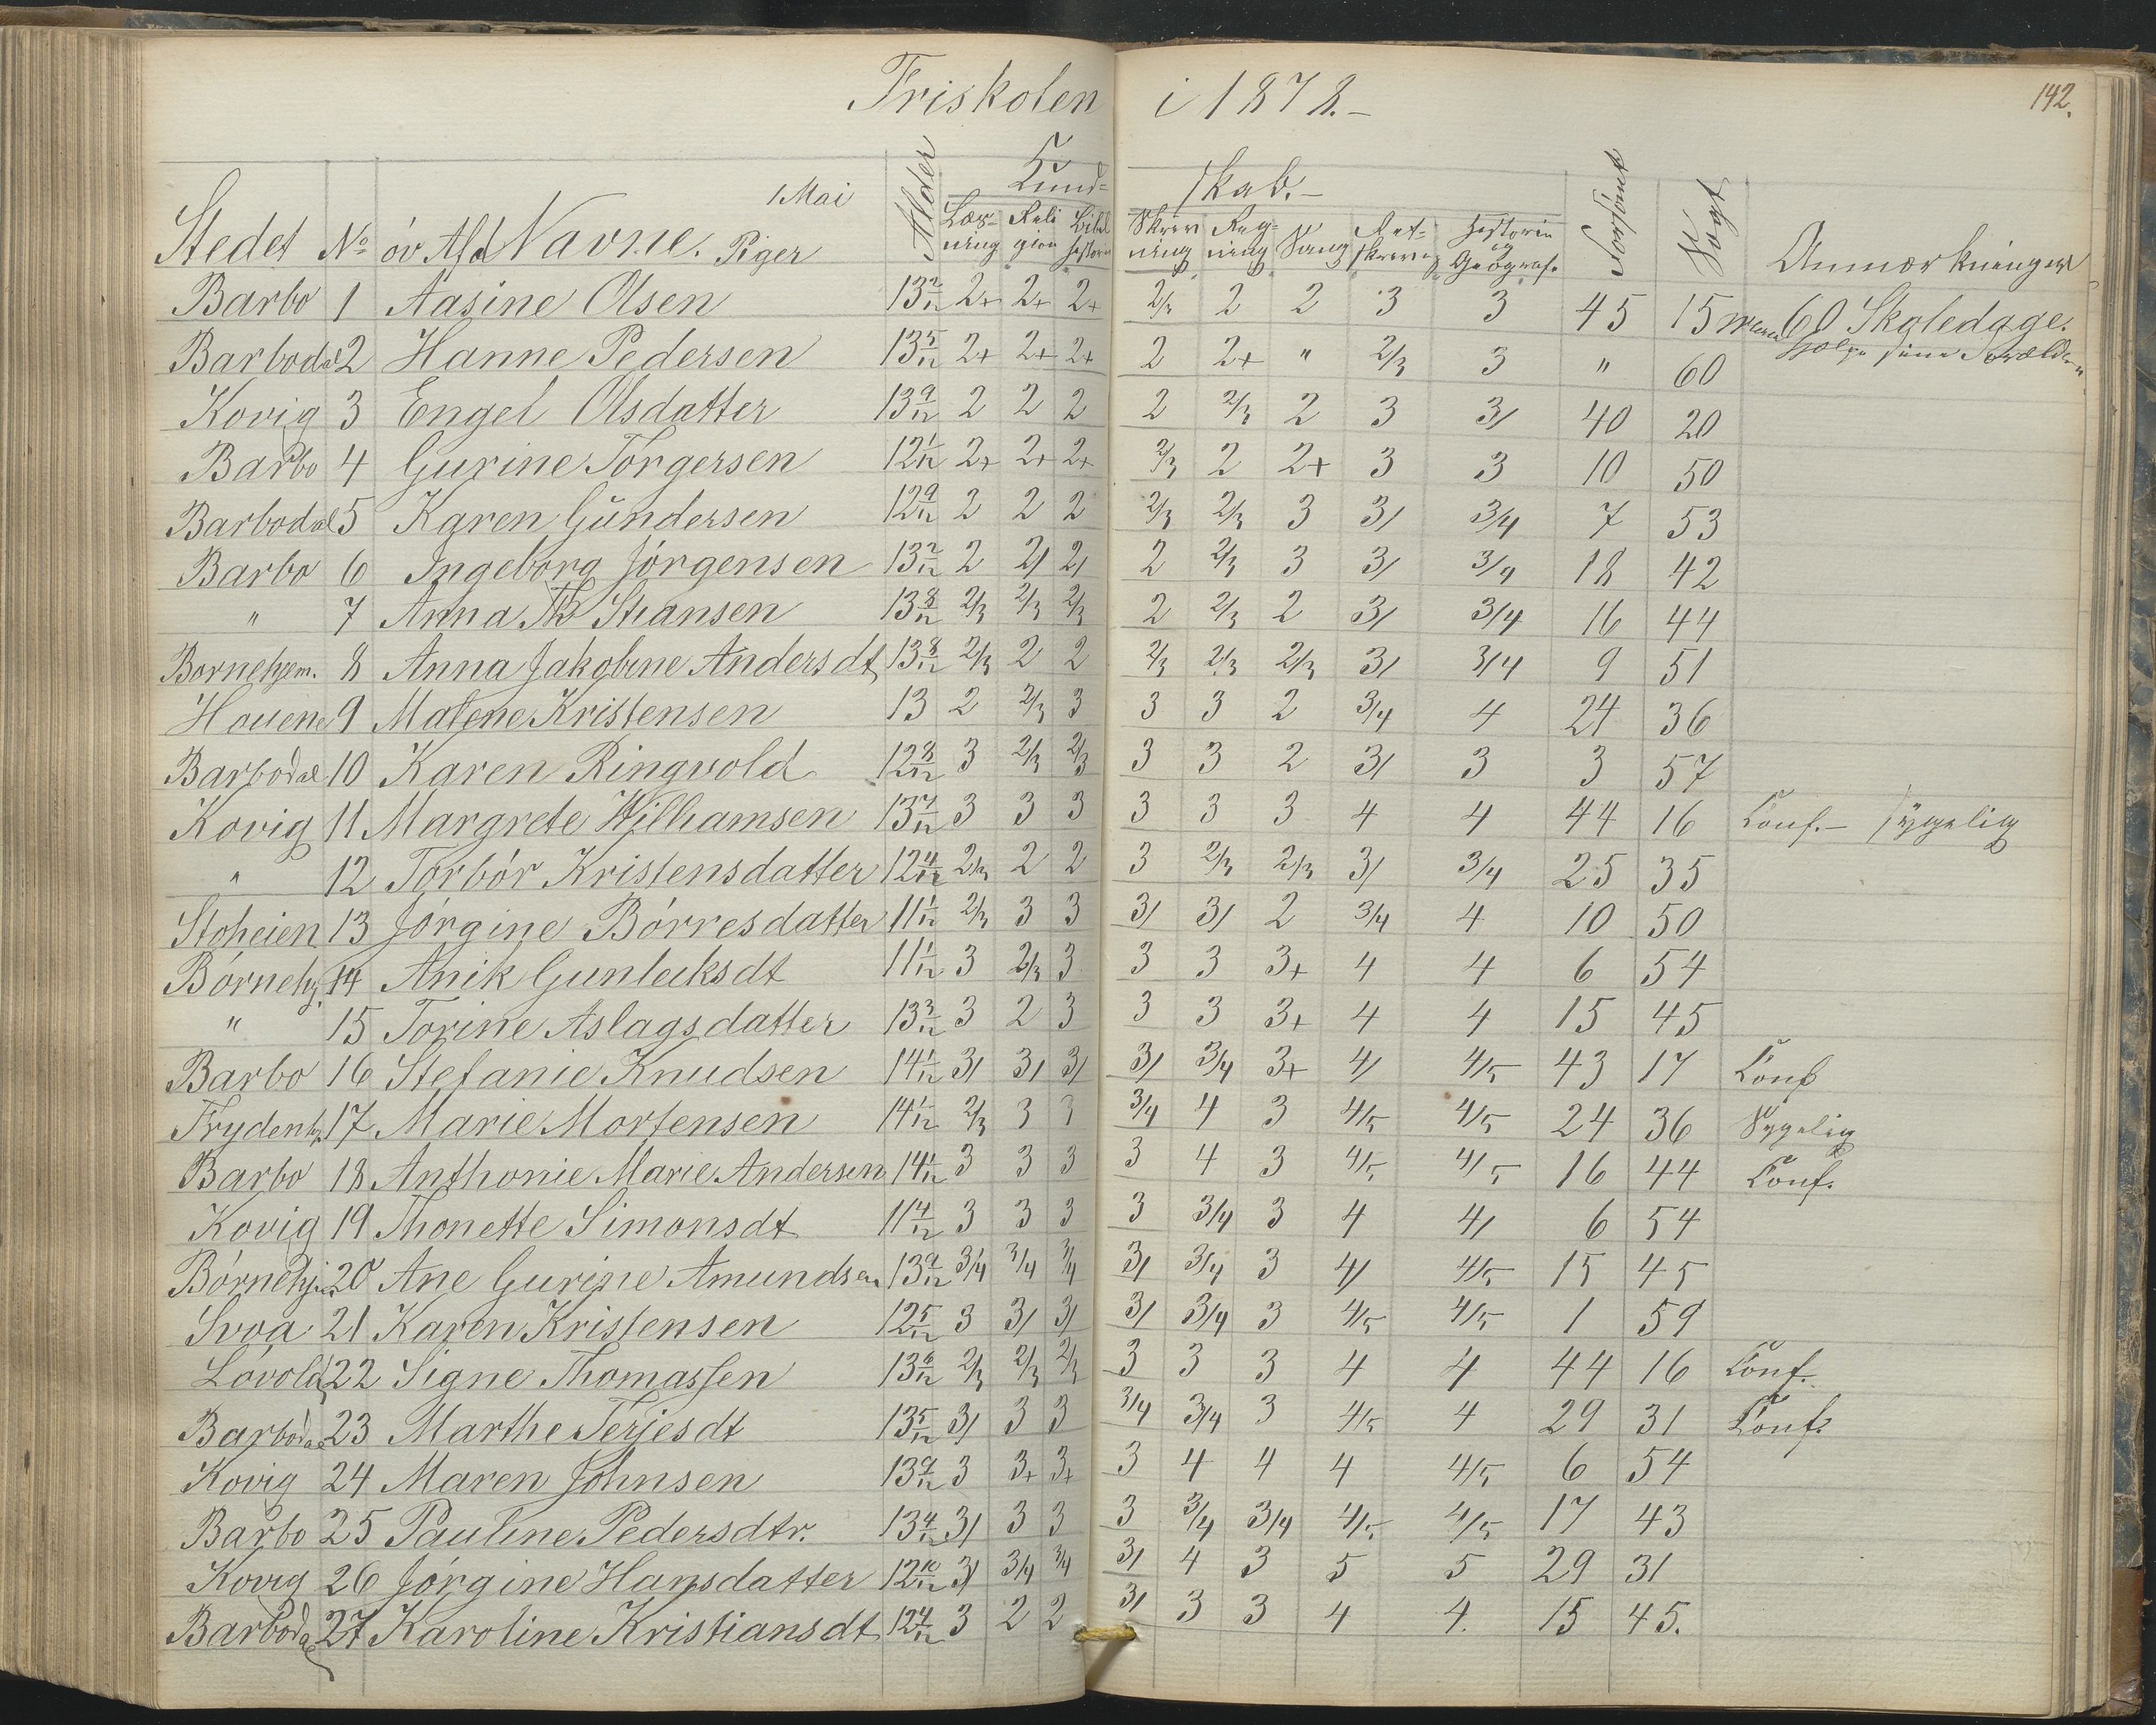 Friskolen i 1878.-
142.
Stedet No öv Afd Navne. Piger 1 Mai Alder Kund= skab.- Læs=ning Reli gion Bibel historie Skriv ning Reg=ning Sang Ret=skrivng Historie og Geograf. Forsömt Sögt Anmærkninger
Barbo 1 Aasine Olsen 13 2/12 2+ 2+ 2+ 2/3 2 2 3 3 45 15 60 Skoledage.
Barbodal 2 Hanne Pedersen 13 5/12 2+ 2+ 2+ 2 2+ " 2/3 3 " 60
Kovig 3 Engel Olsdatter 13 9/12 2 2 2 2 2/3 2 3 3/ 40 20
Barbo 4 Gurine Törgersen 12 1/12 2+ 2+ 2+ 2/3 2 2+ 3 3 10 50
Barbodal 5 Karen Gundersen 12 9/12 2 2 2 2/3 2/3 3 3/ 3/4 7 53
Barbo 6 Ingeborg Jörgensen 13 2/12 2 2/ 2/ 2 2/3 3 3/ 3/4 18 42
" 7 Anna Th Stiansen 13 8/12 2/3 2/3 2/3 2 2/3 2 3/ 3/4 16 44
Bornehjem. 8 Anna Jakobine Andersdt 13 8/12 2/3 2 2 2/3 2/3 2/3 3/ 3/4 9 51
Houene 9 Malene Kristensen 13 2 2/3 3 3 3 2 3/4 4 24 36
Barbodal 10 Karen Ringvold 12 8/12 3 2/3 2/3 3 3 2 3/ 3 3 57
Kovig 11 Margrete Wilhamsen 13 7/12 3 3 3 3 3 3 4 4 44 16 Conf.- sygelig
" 12 Torbör Kristensdatter 12 4/12 2/3 2 2 3 2/3 2/3 3/ 3/4 25 35
Stoheien 13 Jörgine Börresdatter 11 1/12 2/3 3 3 3/ 3/ 2 3/4 4 10 50
Börnehj. 14 Anik Gunleiksdt 11 1/12 3 2/3 3 3 3 3+ 4 4 6 54
" 15 Torine Aslagsdatter 13 3/12 3 2 3 3 3 3+ 4 4 15 45
Barbo 16 Stefanie Knudsen 14 1/12 3/ 3/ 3/ 3/ 3/4 3+ 4/ 4/5 43 17 Conf
Frydenh. 17 Marie Mortensen 14 1/12 2/3 3 3 3/4 4 3 4/5 4/5 24 36 Sygelig
Barbo 18 Anthonie Marie Andersen 14 1/12 3 3 3 3 4 3 4/5 4/5 16 44 Conf.
Kovig 19 Thonette Simonsdt 11 4/12 3 3 3 3 3/4 3 4 4/ 6 54
Börnehjem 20 Ane Gurine Amundsen 13 9/12 3/4 3/4 3/4 3/ 3/4 3 4/ 4/5 15 45
Svoa 21 Karen Kristensen 12 5/12 3 3/ 3/ 3/ 3/4 3 4/5 4/5 1 59
Lövold 22 Signe Thomassen 13 6/12 2/3 2/3 2/3 3 3 3 4 4 44 16 Conf.
Barbodal 23 Marthe Terjesdt 13 5/12 3/ 3 3 3/4 3/4 3 4/5 4 29 31 Conf.
Kovig 24 Maren Johnsen 13 9/12 3 3+ 3+ 3 4 4 4 4/5 6 54
Barbo 25 Pauline Pedersdtr. 13 4/12 3/ 3 3 3 3/4 3/4 4/5 4/5 17 43
Kovig 26 Jörgine Hansdatter 12 10/12 3/ 3/4 3/4 3/ 4 3 5 5 29 31
Barbodal 27 Karoline Kristiansdt 12 4/12 3 2 2 3/ 3 3 4 4. 15 45.